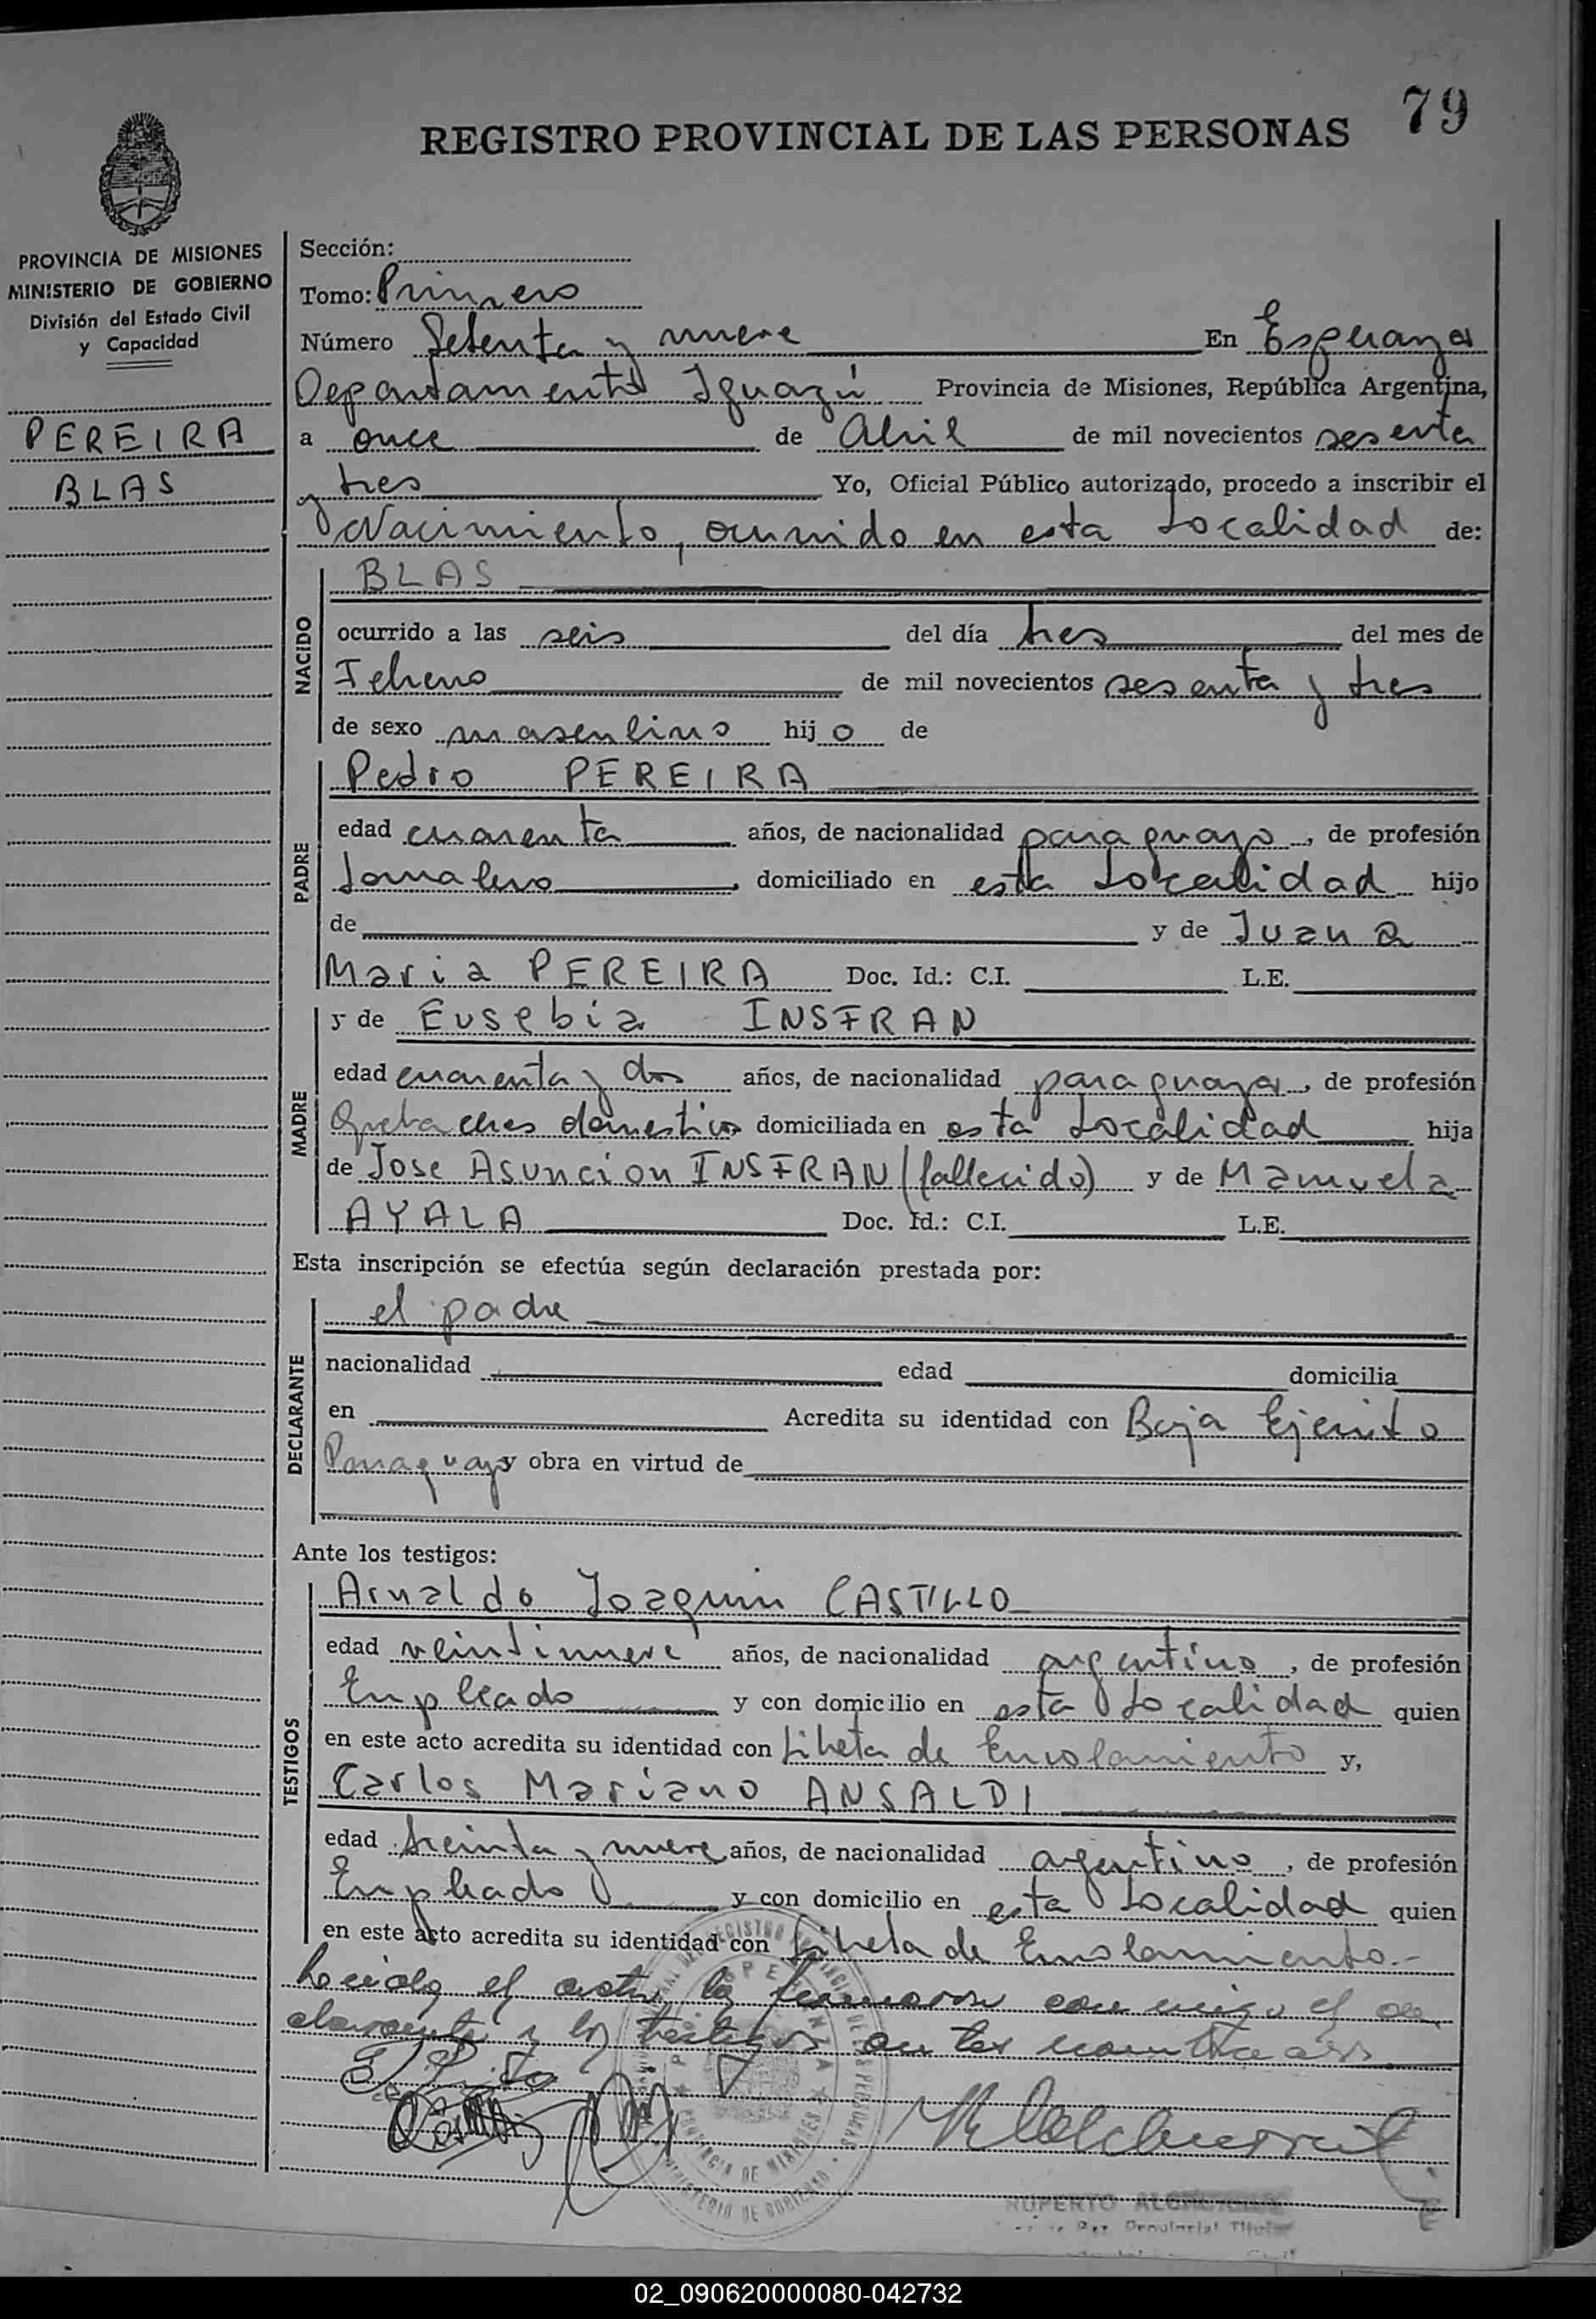 79
REGISTRO PROVINCIAL DE LAS PERSONAS
PROVINCIA DE MISIONES
MINISTERIO DE GOBIERNO
División del Estado Civil
y Capacidad
PEREIRA
BLAS
Sección:
Tomo: Primero
Número Setenta y nueve En Esperanza
Departamento Iguazú Provincia de Misiones, República Argentina,
a once de Abril de mil novecientos sesenta
y tres Yo, Oficial Público autorizado, procedo a inscribir el
Nacimiento, ocurrido en esta Localidad de:
NACIDO
BLAS
ocurrido a las seis del día tres del mes de
Febrero de mil novecientos sesenta y tres
de sexo masculino hijo de
PADRE
Pedro PEREIRA
edad cuarenta años, de nacionalidad paraguayo, de profesión
Jornalero, domiciliado en esta Localidad hijo
de y de Juana
Maria PEREIRA Doc. Id.: C.I. L.E.
MADRE
y de Eusebia INSFRAN
edad cuarenta y dos años, de nacionalidad paraguaya, de profesión
Quehaceres domesticos domiciliada en esta Localidad hija
de Jose Asuncion INSFRAN (fallecido) y de Manuela
AYALA Doc. Id.: C.I. L.E.
Esta inscripción se efectúa según declaración prestada por:
DECLARANTE
el padre
nacionalidad edad domicilia
en Acredita su identidad con Baja Ejercito
Paraguayo y obra en virtud de
Ante los testigos:
TESTIGOS
Arnaldo Joaquin CASTILLO
edad veintinueve años, de nacionalidad argentino, de profesión
Empleado y con domicilio en esta Localidad quien
en este acto acredita su identidad con Libreta de Enrolamiento y,
Carlos Mariano ANSALDI
edad treinta y nueve años, de nacionalidad argentino, de profesión
Empleado y con domicilio en esta Localidad quien
en este acto acredita su identidad con Libreta de Enrolamiento.-
Leida el acta, la firmaron conmigo el de
clarante y los testigos
PROVINCIA DE MISIONES
MINISTERIO DE GOBIERNO
RUPERTO
Provincial Titular
02_090620000080-042732